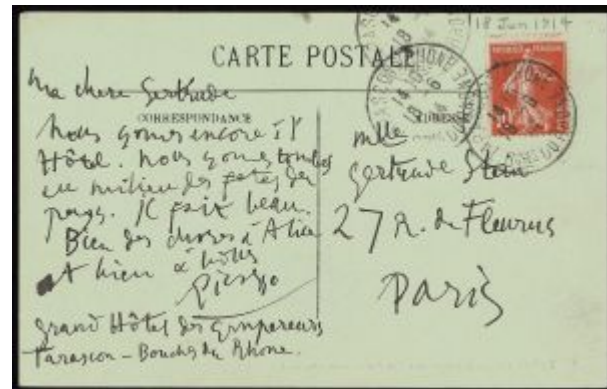 18 Jun 1914
CARTE POSTALE
Ma chere Gertrude
CORRESPONDANCE
ADRESSE
Nous somes encore à l'
Hôtel. Nous somes tombes
au milieu des fetes du
pays. Il fait beau.
Bien des choses à Alice
et bien à vous
Picasso
Grand Hôtel des Empereurs
Tarascon - Bouches du Rhone.
Mlle
Gertrude Stein
27 R. de Fleurus
Paris